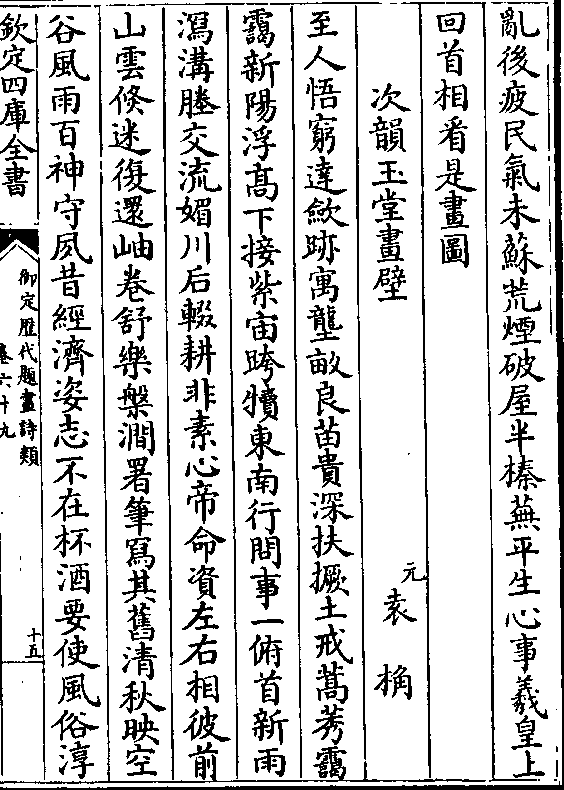 亂後疲民氣未蘇荒煙破屋半榛蕪平生心事羲皇上
回首相看是畫圖
次韻玉堂畫壁
元袁桷
至人悟窮達斂跡寓壟畝良苗貴深扶撅土戒蒿莠靄
靄新陽浮高下接紫宙跨犢東南行問事一俯首新雨
瀉溝塍交流媚川后輟耕非素心帝命資左右相彼前
山雲倐迷復還岫卷舒樂槃澗署筆寫其舊清秋映空
谷風雨百神守夙昔經濟姿志不在杯酒要使風俗淳
欽定四庫全書
御定歴代題畫詩類
卷六十九
十五